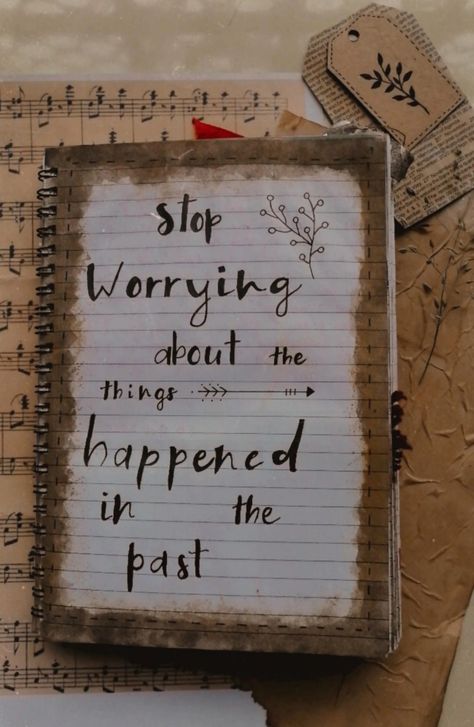 stop
Worrying
about the
things
happened
in the
past